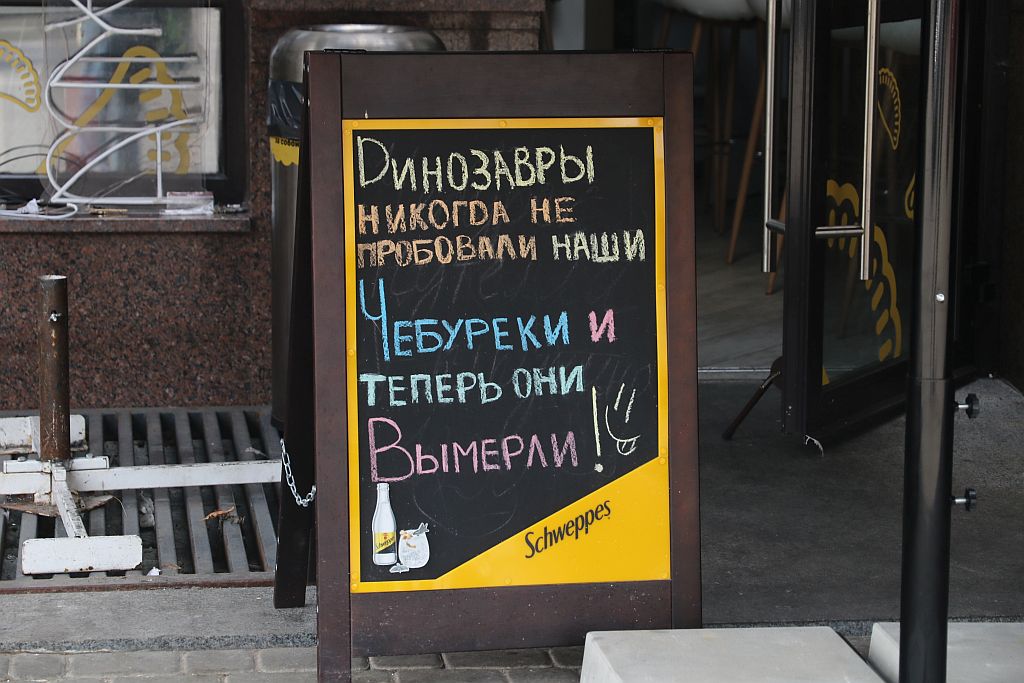 Динозавры
никогда не
пробовали наши
Чебуреки и
теперь они
Вымерли!
Schweppes